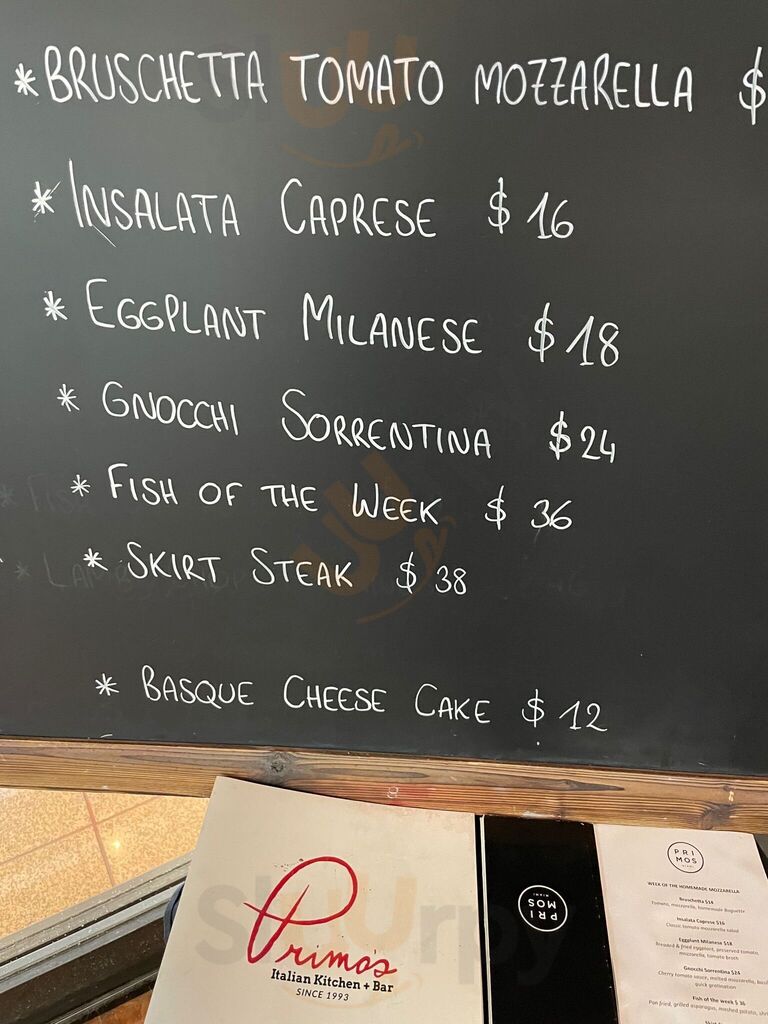 * BRUSCHETTA TOMATO MOZZARELLA $
* INSALATA CAPRESE $ 16
* EGGPLANT MILANESE $ 18
* GNOCCHI SORRENTINA $ 24
* FISH OF THE WEEK $ 36
* SKIRT STEAK $ 38
* BASQUE CHEESE CAKE $ 12
Primo's
Italian Kitchen + Bar
SINCE 1993
PRI
MOS
MIAMI
PRI
MOS
MIAMI
WEEK OF THE HOMEMADE MOZZARELLA
Bruschetta $14
Tomato, mozzarella, homemade Baguette
Insalata Caprese $16
Classic tomato mozzarella salad
Eggplant Milanese $18
Breaded & fried eggplant, preserved tomato,
mozzarella, tomato broth
Gnocchi Sorrentina $24
Cherry tomato sauce, melted mozzarella,
quick gratination
Fish of the week $ 36
Pan fried, grilled asparagus, mashed potato,